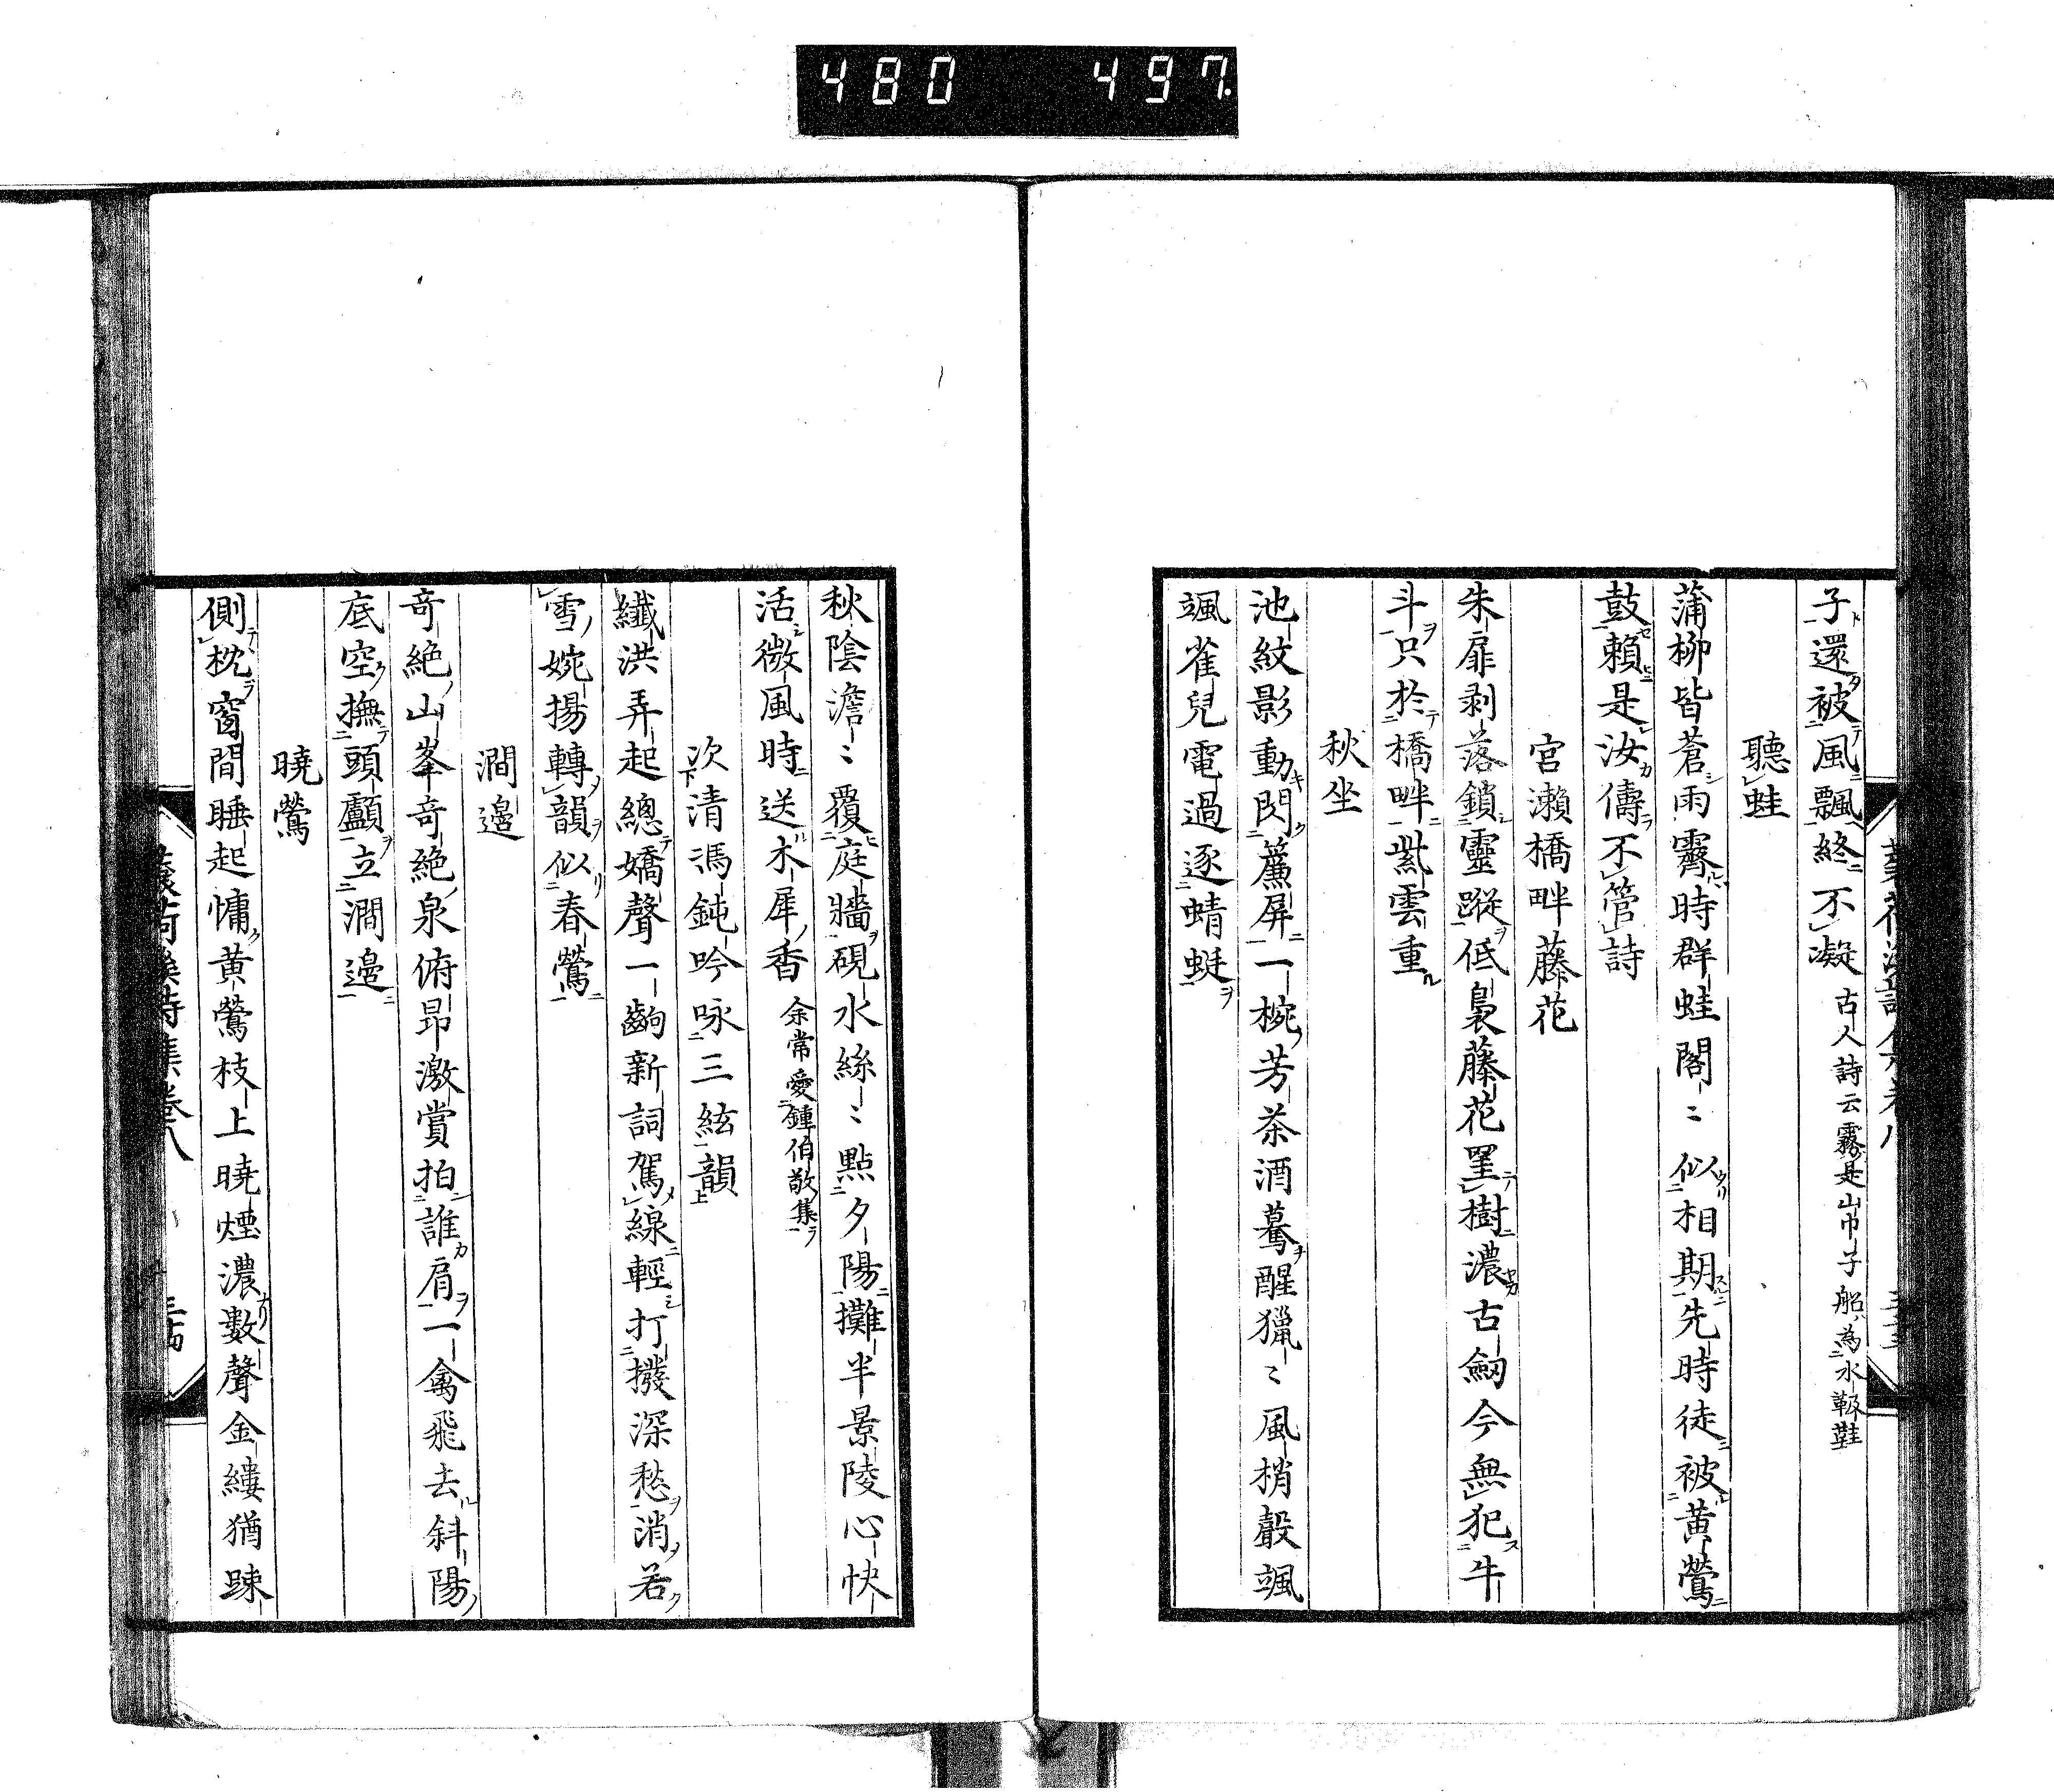 480 497
子還被風飄終不凝 古人詩云霧是山巾子船為水靸鞋
聽蛙
蒲柳皆蒼雨霽時群蛙閣〻似相期先時徒被黃鶯
鼓賴是汝儔不管詩
宮瀨橋畔藤花
朱扉剥落鎖靈蹤低裊藤花罣樹濃古劒今無犯牛
斗只於橋畔紫雲重
秋坐
池紋影動閃簾屏一椀芳茶酒驀醒獵〻風梢聲颯
颯雀兒電過逐蜻蜓
秋陰澹〻覆庭牆硯水絲〻點夕陽攤半景陵心快
活微風時送木犀香 余常愛鍾伯敬集
次清馮鈍吟咏三絃韻
纖洪弄起總嬌聲一齣新詞駕線輕打撥深愁消若
雪婉揚轉韻似春鶯
澗邉
奇絶山峯奇絶泉俯昂激賞拍誰肩一禽飛去斜陽
底空撫頭顱立澗邉
曉鶯
側枕窗間睡起慵黃鶯枝上曉煙濃數聲金縷猶踈
詩集卷八